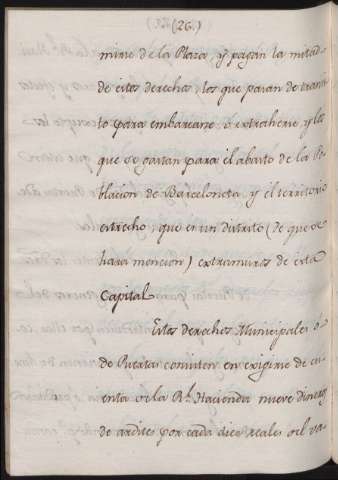 (26.)
mine de la Plaza, y pagan la mitad
de estos derechos, los que pasan de transi
to para embarcarse, ò extraherse, y los
que se gastan para el abasto de la Po
blacion de Barceloneta, y el territorio
estrecho, que en un distrito (de que se
hara mencion) extramuros de esta
Capital.
Estos derechos Municipales ò
de Puertas consisten en exigirse de cu
enta de la Rl. Hacienda nueve dineros
de ardites por cada diez reales del va-